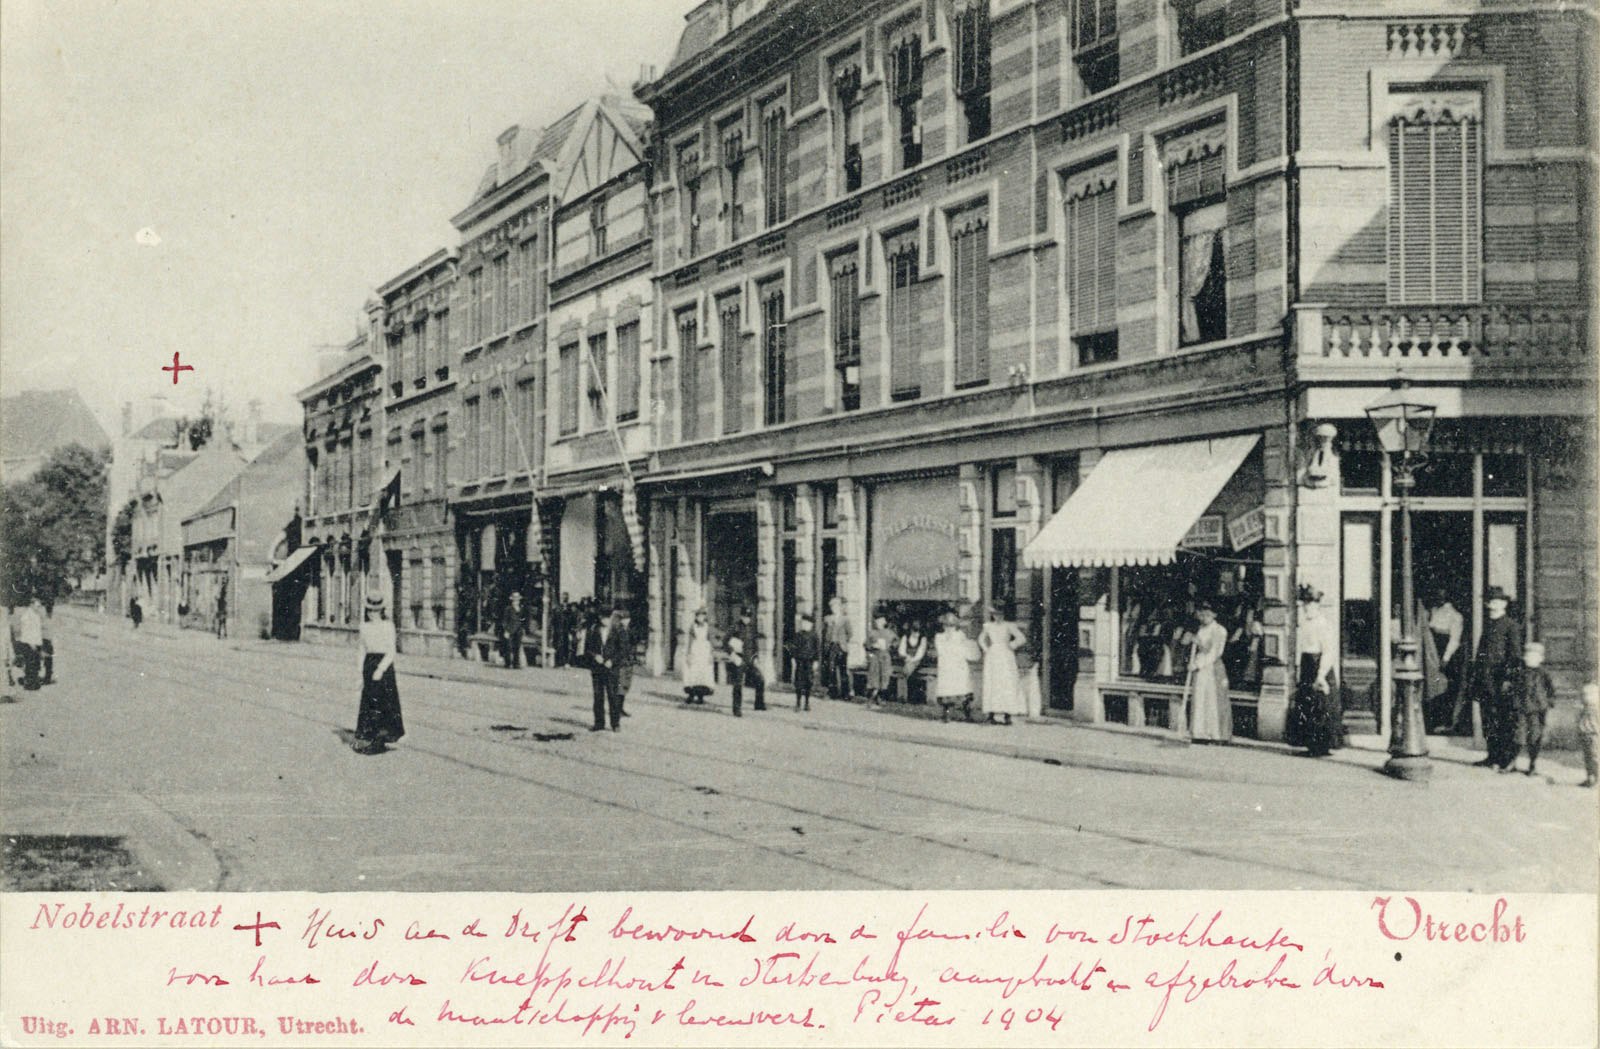 Nobelstraat
Utrecht
+ Huis aan de Drift bewoond door de familie von Stockhausen,
voor haar door Kneppelhout van Sterkenburg, aangekocht en afgebroken door
de maatschappij v levensverz. Pietas 1904
Uitg. ARN. LATOUR, Utrecht.